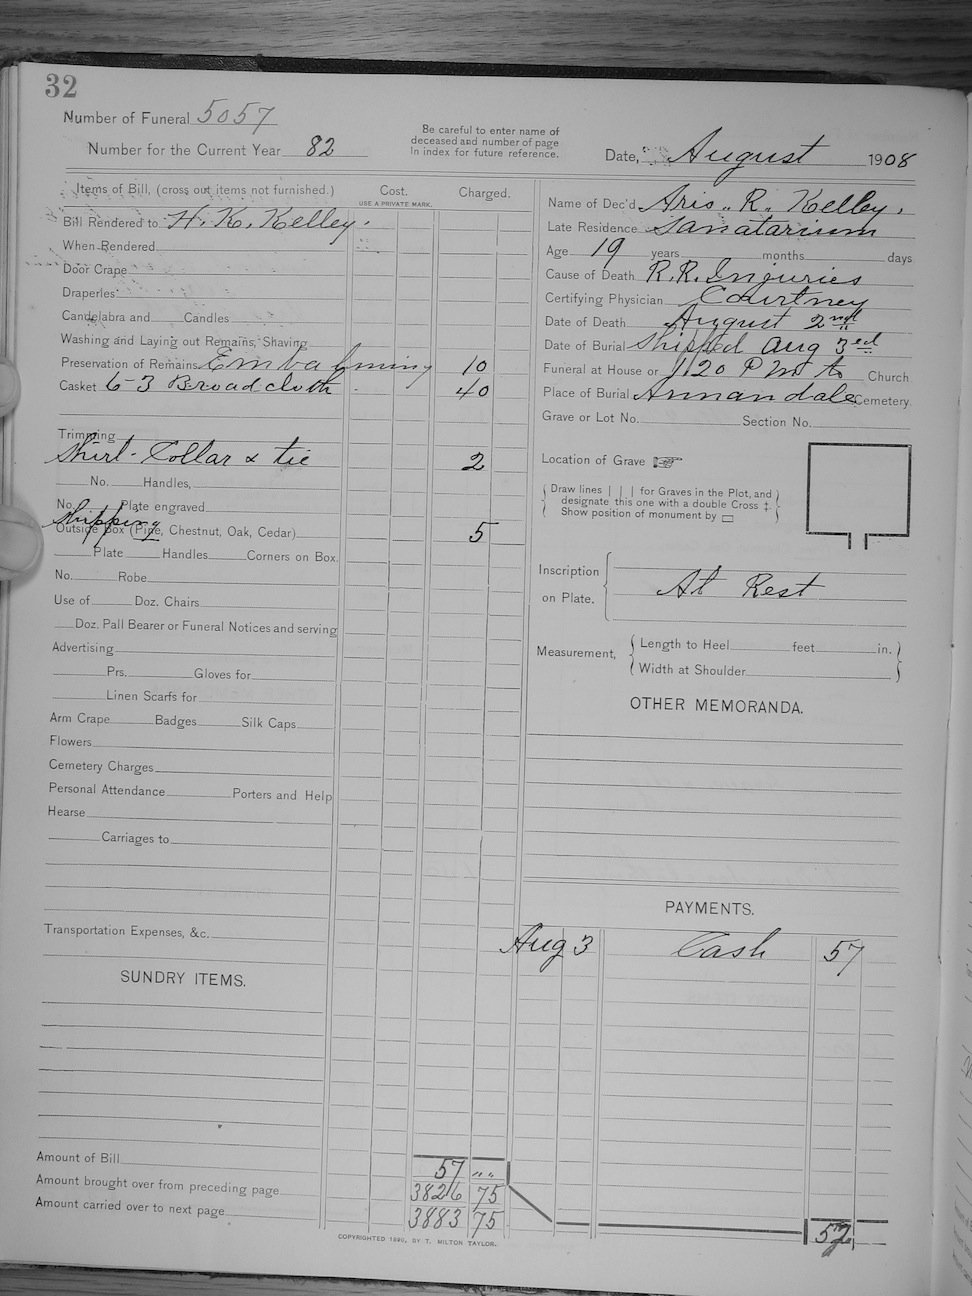 32
Number of Funeral 5057
Number for the Current Year 82
Be careful to enter name of
deceased and number of page
in index for future reference.
Date, August 1908
Items of Bill, (cross out items not furnished.) Cost. Charged.
USE A PRIVATE MARK.
Bill Rendered to H. K. Kelley.
When Rendered
Door Crape
Draperies
Candelabra and Candles
Washing and Laying out Remains, Shaving
Preservation of Remains Embalming 10
Casket 6-3 Broadcloth 40
Trimming
Shirt - Collar & tie 2
No. Handles,
No. Plate engraved
Shipping
Outside Box (Pine, Chestnut, Oak, Cedar) 5
Plate Handles Corners on Box.
No. Robe
Use of Doz. Chairs
Doz. Pall Bearer or Funeral Notices and serving
Advertising
Prs. Gloves for
Linen Scarfs for
Arm Crape Badges Silk Caps
Flowers
Cemetery Charges
Personal Attendance Porters and Help
Hearse
Carriages to
Transportation Expenses, &c.
SUNDRY ITEMS.
Amount of Bill 57 " "
Amount brought over from preceding page 3826 75
Amount carried over to next page 3883 75
COPYRIGHTED 1890, BY T. MILTON TAYLOR.
Name of Dec'd Aris.. R. Kelley.
Late Residence Sanatarium
Age 19 years months days
Cause of Death R.R. Injuries
Certifying Physician Courtney
Date of Death August 2nd
Date of Burial Shipped Aug 3ed
Funeral at House or 1.20 P M to Church
Place of Burial Annandale Cemetery.
Grave or Lot No. Section No.
Location of Grave
Draw lines | | | for Graves in the Plot, and
designate this one with a double Cross ‡.
Show position of monument by
Inscription
on Plate.
At Rest
Measurement, Length to Heel feet in.
Width at Shoulder
OTHER MEMORANDA.
PAYMENTS.
Aug 3 Cash 57
57